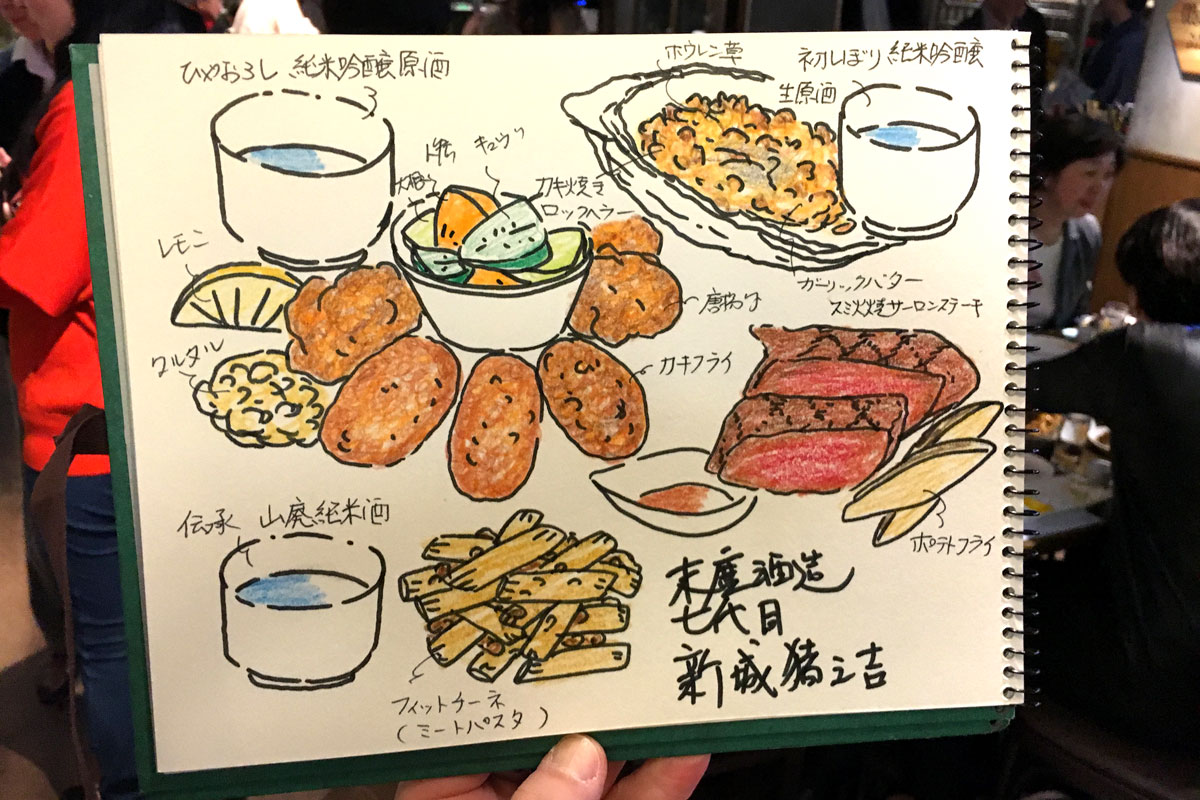 ひやおろし 純米吟醸原酒
ホウレン草
初しぼり純米吟醸
生原酒
キュウリ
カキ焼き
ロックヘラー
レモン
ガーリックバター
スミ火焼サーロンステーキ
唐揚げ
タルタル
カキフライ
伝承 山廃純米酒
ポテトフライ
末廣酒造
七代目
新城猪之吉
フィットチーネ
(ミートパスタ)